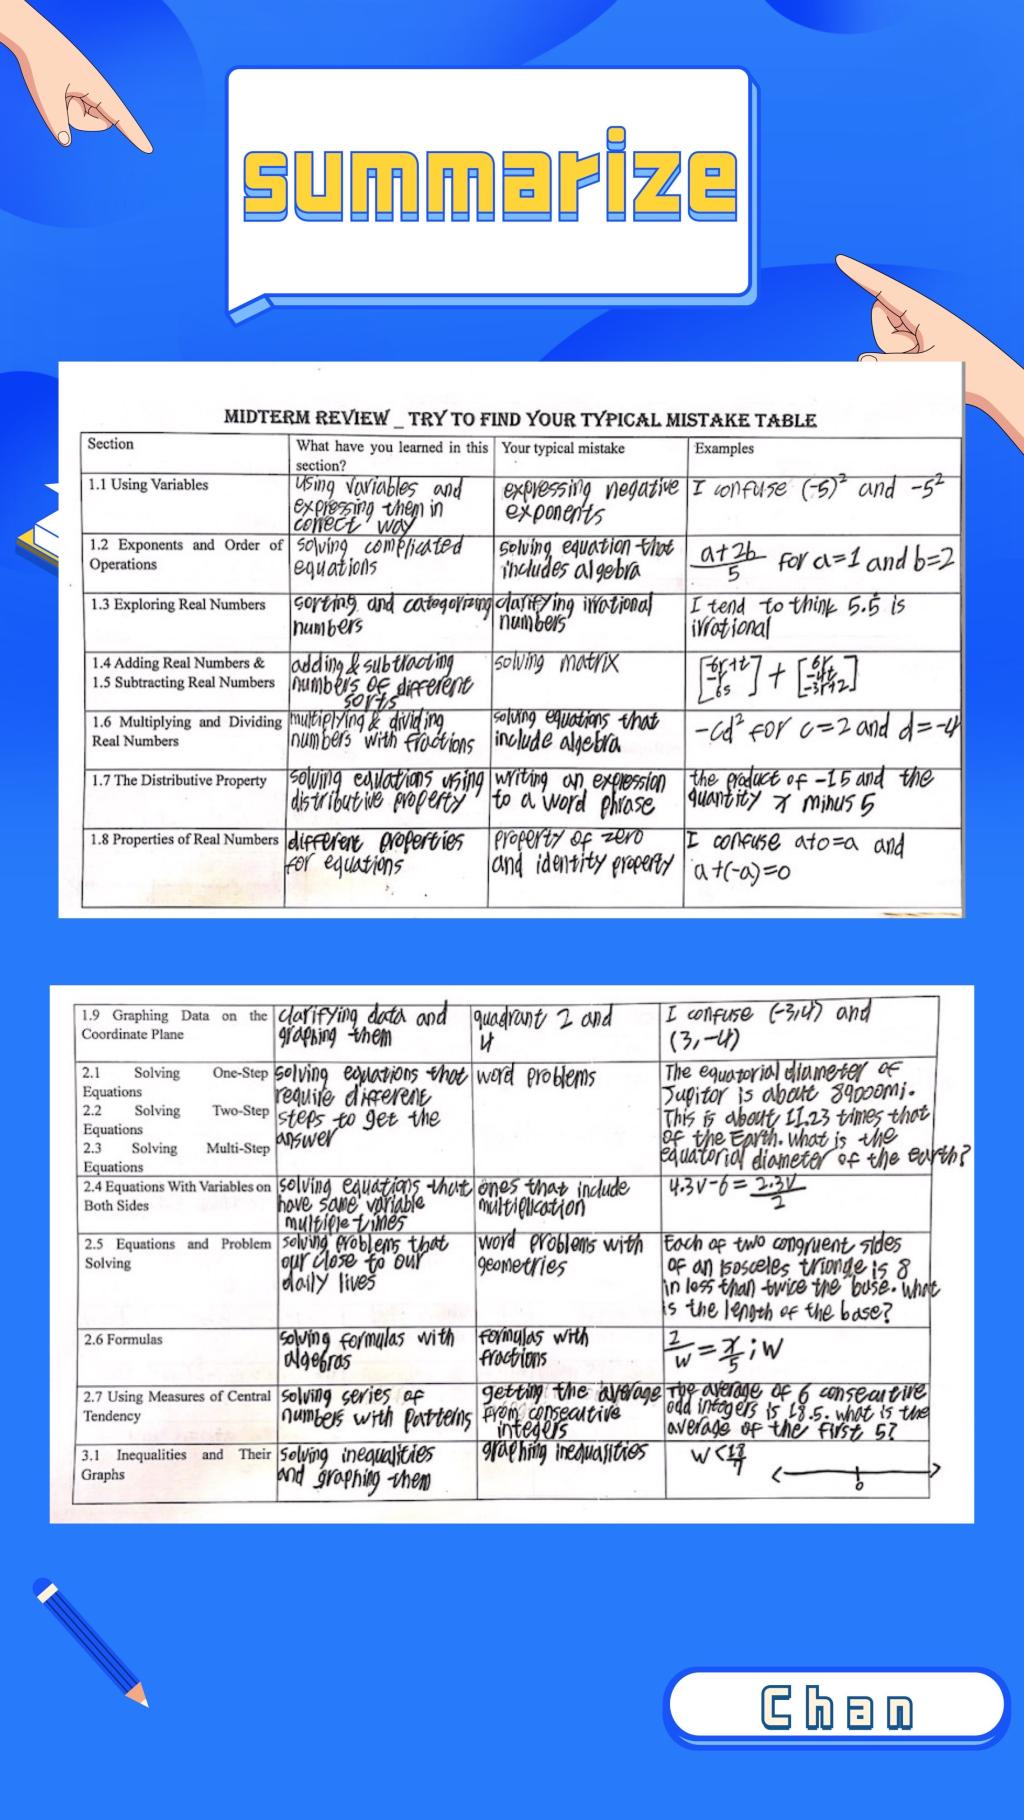 summarize
MIDTERM REVIEW _ TRY TO FIND YOUR TYPICAL MISTAKE TABLE
Section
What have you learned in this
section?
Your typical mistake
Examples
1.1 Using Variables
using variables and
expressing them in
correct way
expressing negative
exponents
I confuse (-5)² and -5²
1.2 Exponents and Order of
Operations
solving complicated
equations
solving equation that
includes algebra
a+2b/5 for a=1 and b=2
1.3 Exploring Real Numbers
sorting and categorizing
numbers
clarifying irrational
numbers
I tend to think 5.5 is
irrational
1.4 Adding Real Numbers &
1.5 Subtracting Real Numbers
adding & subtracting
numbers of different
sorts
solving matrix
1.6 Multiplying and Dividing
Real Numbers
multiplying & dividing
numbers with fractions
solving equations that
include algebra
-cd² for c=2 and d=-4
1.7 The Distributive Property
solving equations using
distributive property
writing an expression
to a word phrase
the product of -15 and the
quantity x minus 5
1.8 Properties of Real Numbers
different properties
for equations
property of zero
and identity property
I confuse a+0=a and
a+(-a)=0
1.9 Graphing Data on the
Coordinate Plane
clarifying data and
graphing them
quadrant 2 and
4
I confuse (-3,4) and
(3,-4)
2.1 Solving One-Step
Equations
2.2 Solving Two-Step
Equations
2.3 Solving Multi-Step
Equations
solving equations that
require different
steps to get the
answer
word problems
The equatorial diameter of
Jupitor is about 89000mi.
This is about 11.23 times that
of the Earth. what is the
equatorial diameter of the earth?
2.4 Equations With Variables on
Both Sides
solving equations that
have same variable
multiple times
ones that include
multiplication
4.3v-6=2.3v/2
2.5 Equations and Problem
Solving
solving problems that
our close to our
daily lives
word problems with
geometries
Each of two congruent sides
of an isosceles triangle is 8
in less than twice the base. what
is the length of the base?
2.6 Formulas
solving formulas with
algebras
formulas with
fractions
2/w=x/5; w
2.7 Using Measures of Central
Tendency
solving series of
numbers with patterns
getting the average
from consecutive
integers
The average of 6 consecutive
odd integers is 18.5. what is the
average of the first 5?
3.1 Inequalities and Their
Graphs
solving inequalities
and graphing them
graphing inequalities
w<
0
Chan